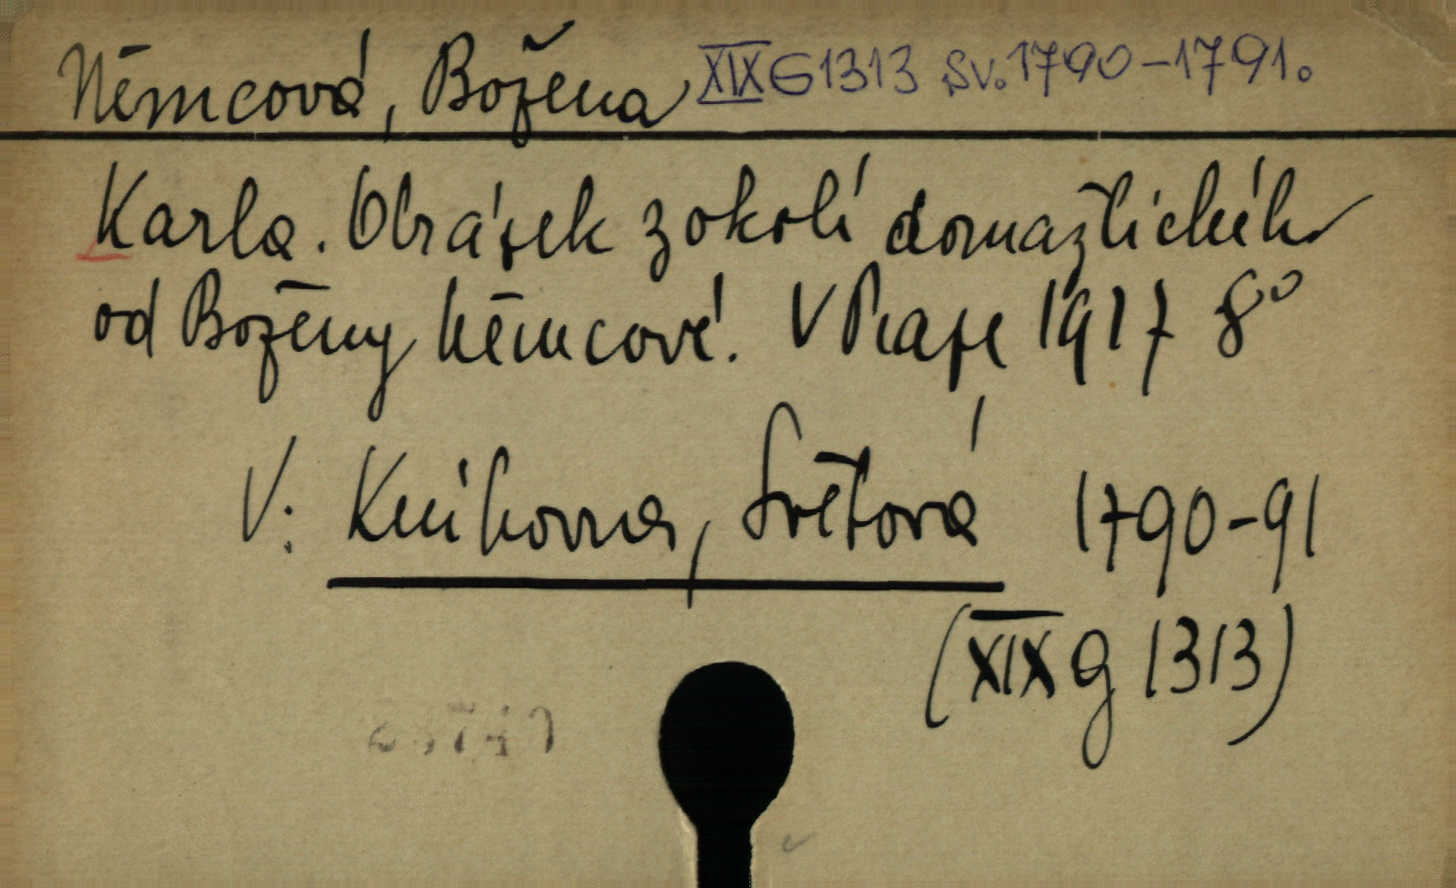 Němcová, Božena XIX G 1313 sv. 1790-1791.
Karla. Obrázek z okolí domažlického
od Boženy Němcové. V Praze 1917 8°
V: Knihovna, Světová 1790-91
(XIX G 1313)